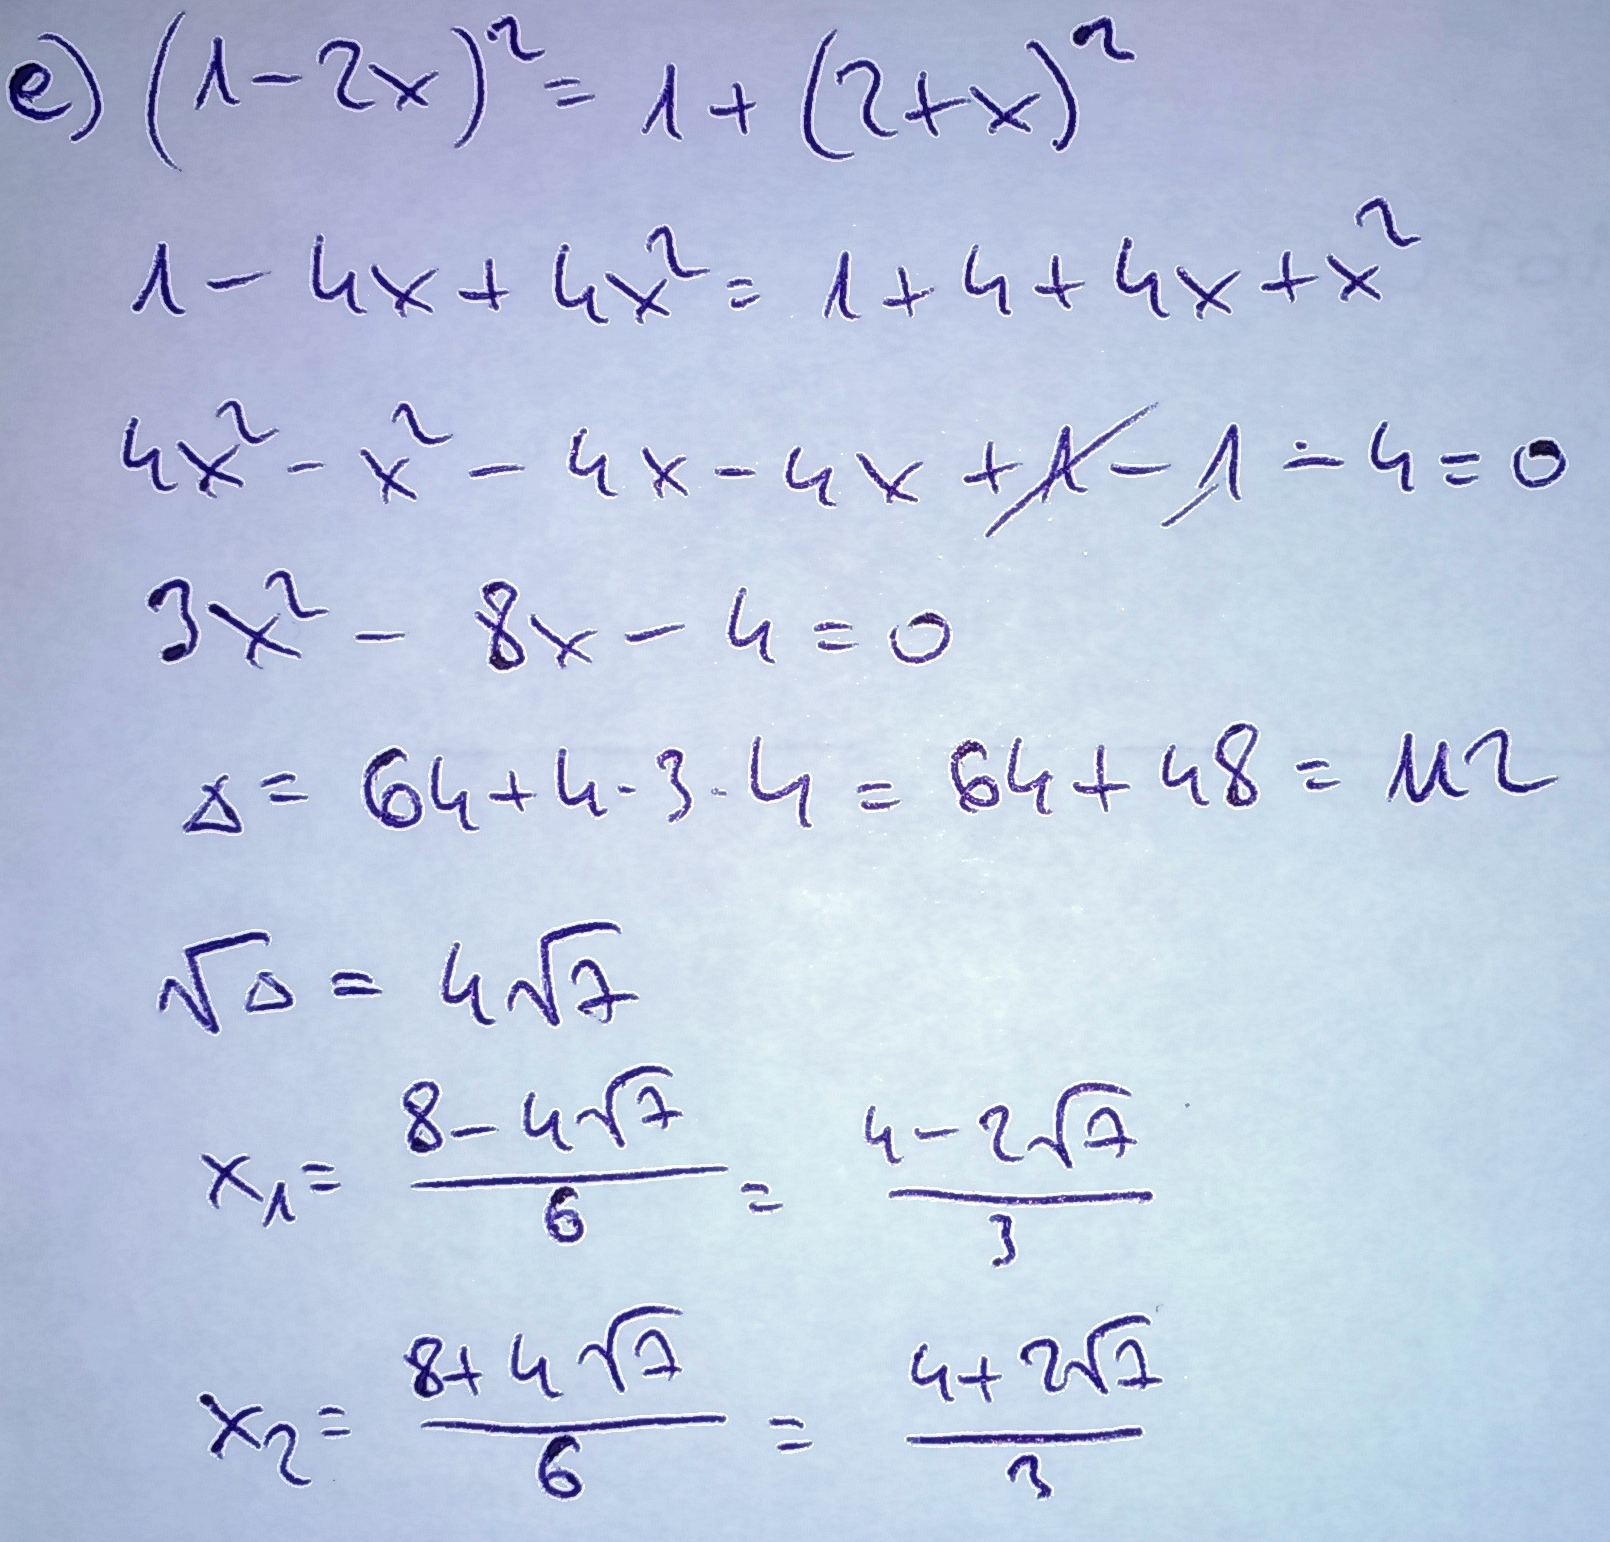 e) (1-2x)² = 1+(2+x)²
1-4x+4x² = 1+4+4x+x²
4x²-x²-4x-4x+1-1-4=0
3x²-8x-4=0
Δ=64+4·3·4=64+48=112
√Δ=4√7
x₁= (8-4√7)/6 = (4-2√7)/3
x₂= (8+4√7)/6 = (4+2√7)/3